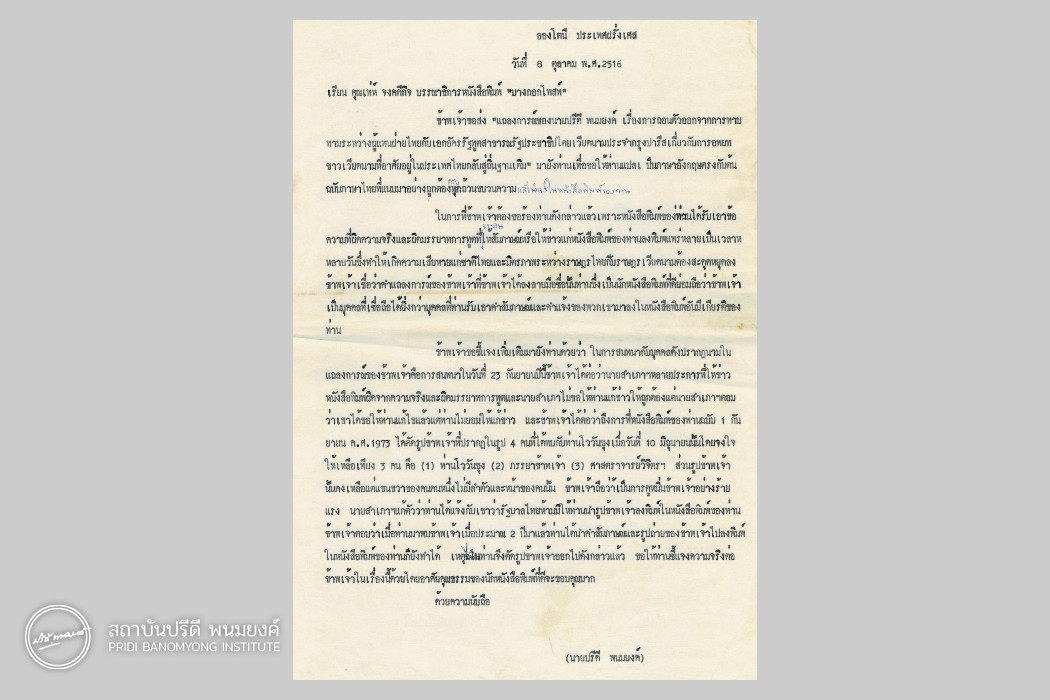 อองโตนี ประเทศฝรั่งเศส
วันที่ 8 ตุลาคม พ.ศ.2516
เรียน คุณเท่ห์ จงคดีกิจ บรรณาธิการหนังสือพิมพ์ "บางกอกโพสท์"
ข้าพเจ้าขอส่ง "แถลงการณ์ของนายปรีดี พนมยงค์ เรื่องการถอนตัวออกจากการทาบ
ทามระหว่างผู้แทนฝ่ายไทยกับเอกอัครรัฐทูตสาธารณรัฐประชาธิปไตยเวียดนามประจำกรุงปารีสเกี่ยวกับการอพยพ
ชาวเวียดนามที่อาศัยอยู่ในประเทศไทยกลับสู่ถิ่นฐานเดิม" มายังท่านเพื่อขอให้ท่านแปลเป็นภาษาอังกฤษตรงกับต้น
ฉบับภาษาไทยที่แนบมาอย่างถูกต้องทุกถ้วนขบวนความแล้วนำลงในหนังสือพิมพ์ของท่าน
ในการที่ข้าพเจ้าต้องขอร้องท่านดังกล่าวแล้วเพราะหนังสือพิมพ์ของท่านได้รับเอาข้อ
ความที่ผิดความจริงและผิดมรรยาทการทูตที่ให้สัมภาษณ์หรือให้ข่าวแก่หนังสือพิมพ์ของท่านลงพิมพ์แพร่หลายเป็นเวลาห
หลายวันซึ่งทำให้เกิดความเสียหายแก่ชาติไทยและมิตรภาพระหว่างราษฎรไทยกับราษฎรเวียดนามต้องสะดุดหยุดลง
ข้าพเจ้าเชื่อว่าคำแถลงการณ์ของข้าพเจ้าที่ข้าพเจ้าได้ลงลายมือชื่อนั้นท่านซึ่งเป็นนักหนังสือพิมพ์ที่ดีย่อมถือว่าข้าพเจ้า
เป็นบุคคลที่เชื่อถือได้ยิ่งกว่าบุคคลที่ท่านรับเอาคำสัมภาษณ์และคำแจ้งของพวกเขามาลงในหนังสือพิมพ์อันมีเกียรติของ
ท่าน
ข้าพเจ้าขอชี้แจงเพิ่มเติมมายังท่านด้วยว่า ในการสนทนากับบุคคลดังปรากฏนามใน
แถลงการณ์ของข้าพเจ้าคือการสนทนาในวันที่ 23 กันยายนปีนี้ข้าพเจ้าได้ต่อว่านายสำเภาฯหลายประการที่ให้ข่าว
หนังสือพิมพ์ผิดจากความจริงและผิดมรรยาทการทูตและนายสำเภาไม่ขอให้ท่านแก้ข่าวให้ถูกต้องแต่นายสำเภาฯตอบ
ว่าเขาได้ขอให้ท่านแก้ไขแล้วแต่ท่านไม่ยอมให้แก้ข่าว และข้าพเจ้าได้ต่อว่าถึงการที่หนังสือพิมพ์ของท่านฉบับ 1 กัน
ยายน ค.ศ.1973 ได้ตัดรูปข้าพเจ้าที่ปรากฏในรูป 4 คนที่ได้พบกับท่านโววันซุงเมื่อวันที่ 10 มิถุนายนนั้นโดยจงใจ
ให้เหลือเพียง 3 คน คือ (1) ท่านโววันซุง (2) ภรรยาข้าพเจ้า (3) ศาสตราจารย์วิจิตรฯ ส่วนรูปข้าพเจ้า
นั้นคงเหลือแต่แขนขวาของคนคนหนึ่งไม่มีลำตัวและหน้าของคนนั้น ข้าพเจ้าถือว่าเป็นการดูหมิ่นข้าพเจ้าอย่างร้าย
แรง นายสำเภาฯแก้ตัวว่าท่านได้แจ้งกับเขาว่ารัฐบาลไทยห้ามมิให้ท่านนำรูปข้าพเจ้าลงพิมพ์ในหนังสือพิมพ์ของท่าน
ข้าพเจ้าตอบว่าเมื่อท่านมาพบข้าพเจ้าเมื่อประมาณ 2 ปีมาแล้วท่านได้นำคำสัมภาษณ์และรูปถ่ายของข้าพเจ้าไปลงพิมพ์
ในหนังสือพิมพ์ของท่านก็ยังทำได้ เหตุไฉนท่านจึงตัดรูปข้าพเจ้าออกไปดังกล่าวแล้ว ขอให้ท่านชี้แจงความจริงต่อ
ข้าพเจ้าในเรื่องนี้ด้วยโดยอาศัยคุณธรรมของนักหนังสือพิมพ์ที่ดีจะขอบคุณมาก
ด้วยความนับถือ
(นายปรีดี พนมยงค์)
สถาบันปรีดี พนมยงค์
PRIDI BANOMYONG INSTITUTE